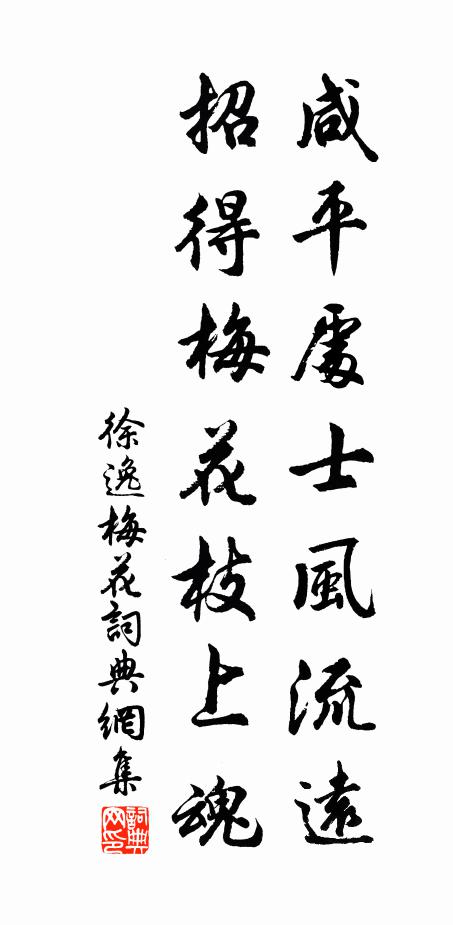 咸平處士風流遠
招得梅花枝上魂
徐逸梅花詞典網集
詞典网印